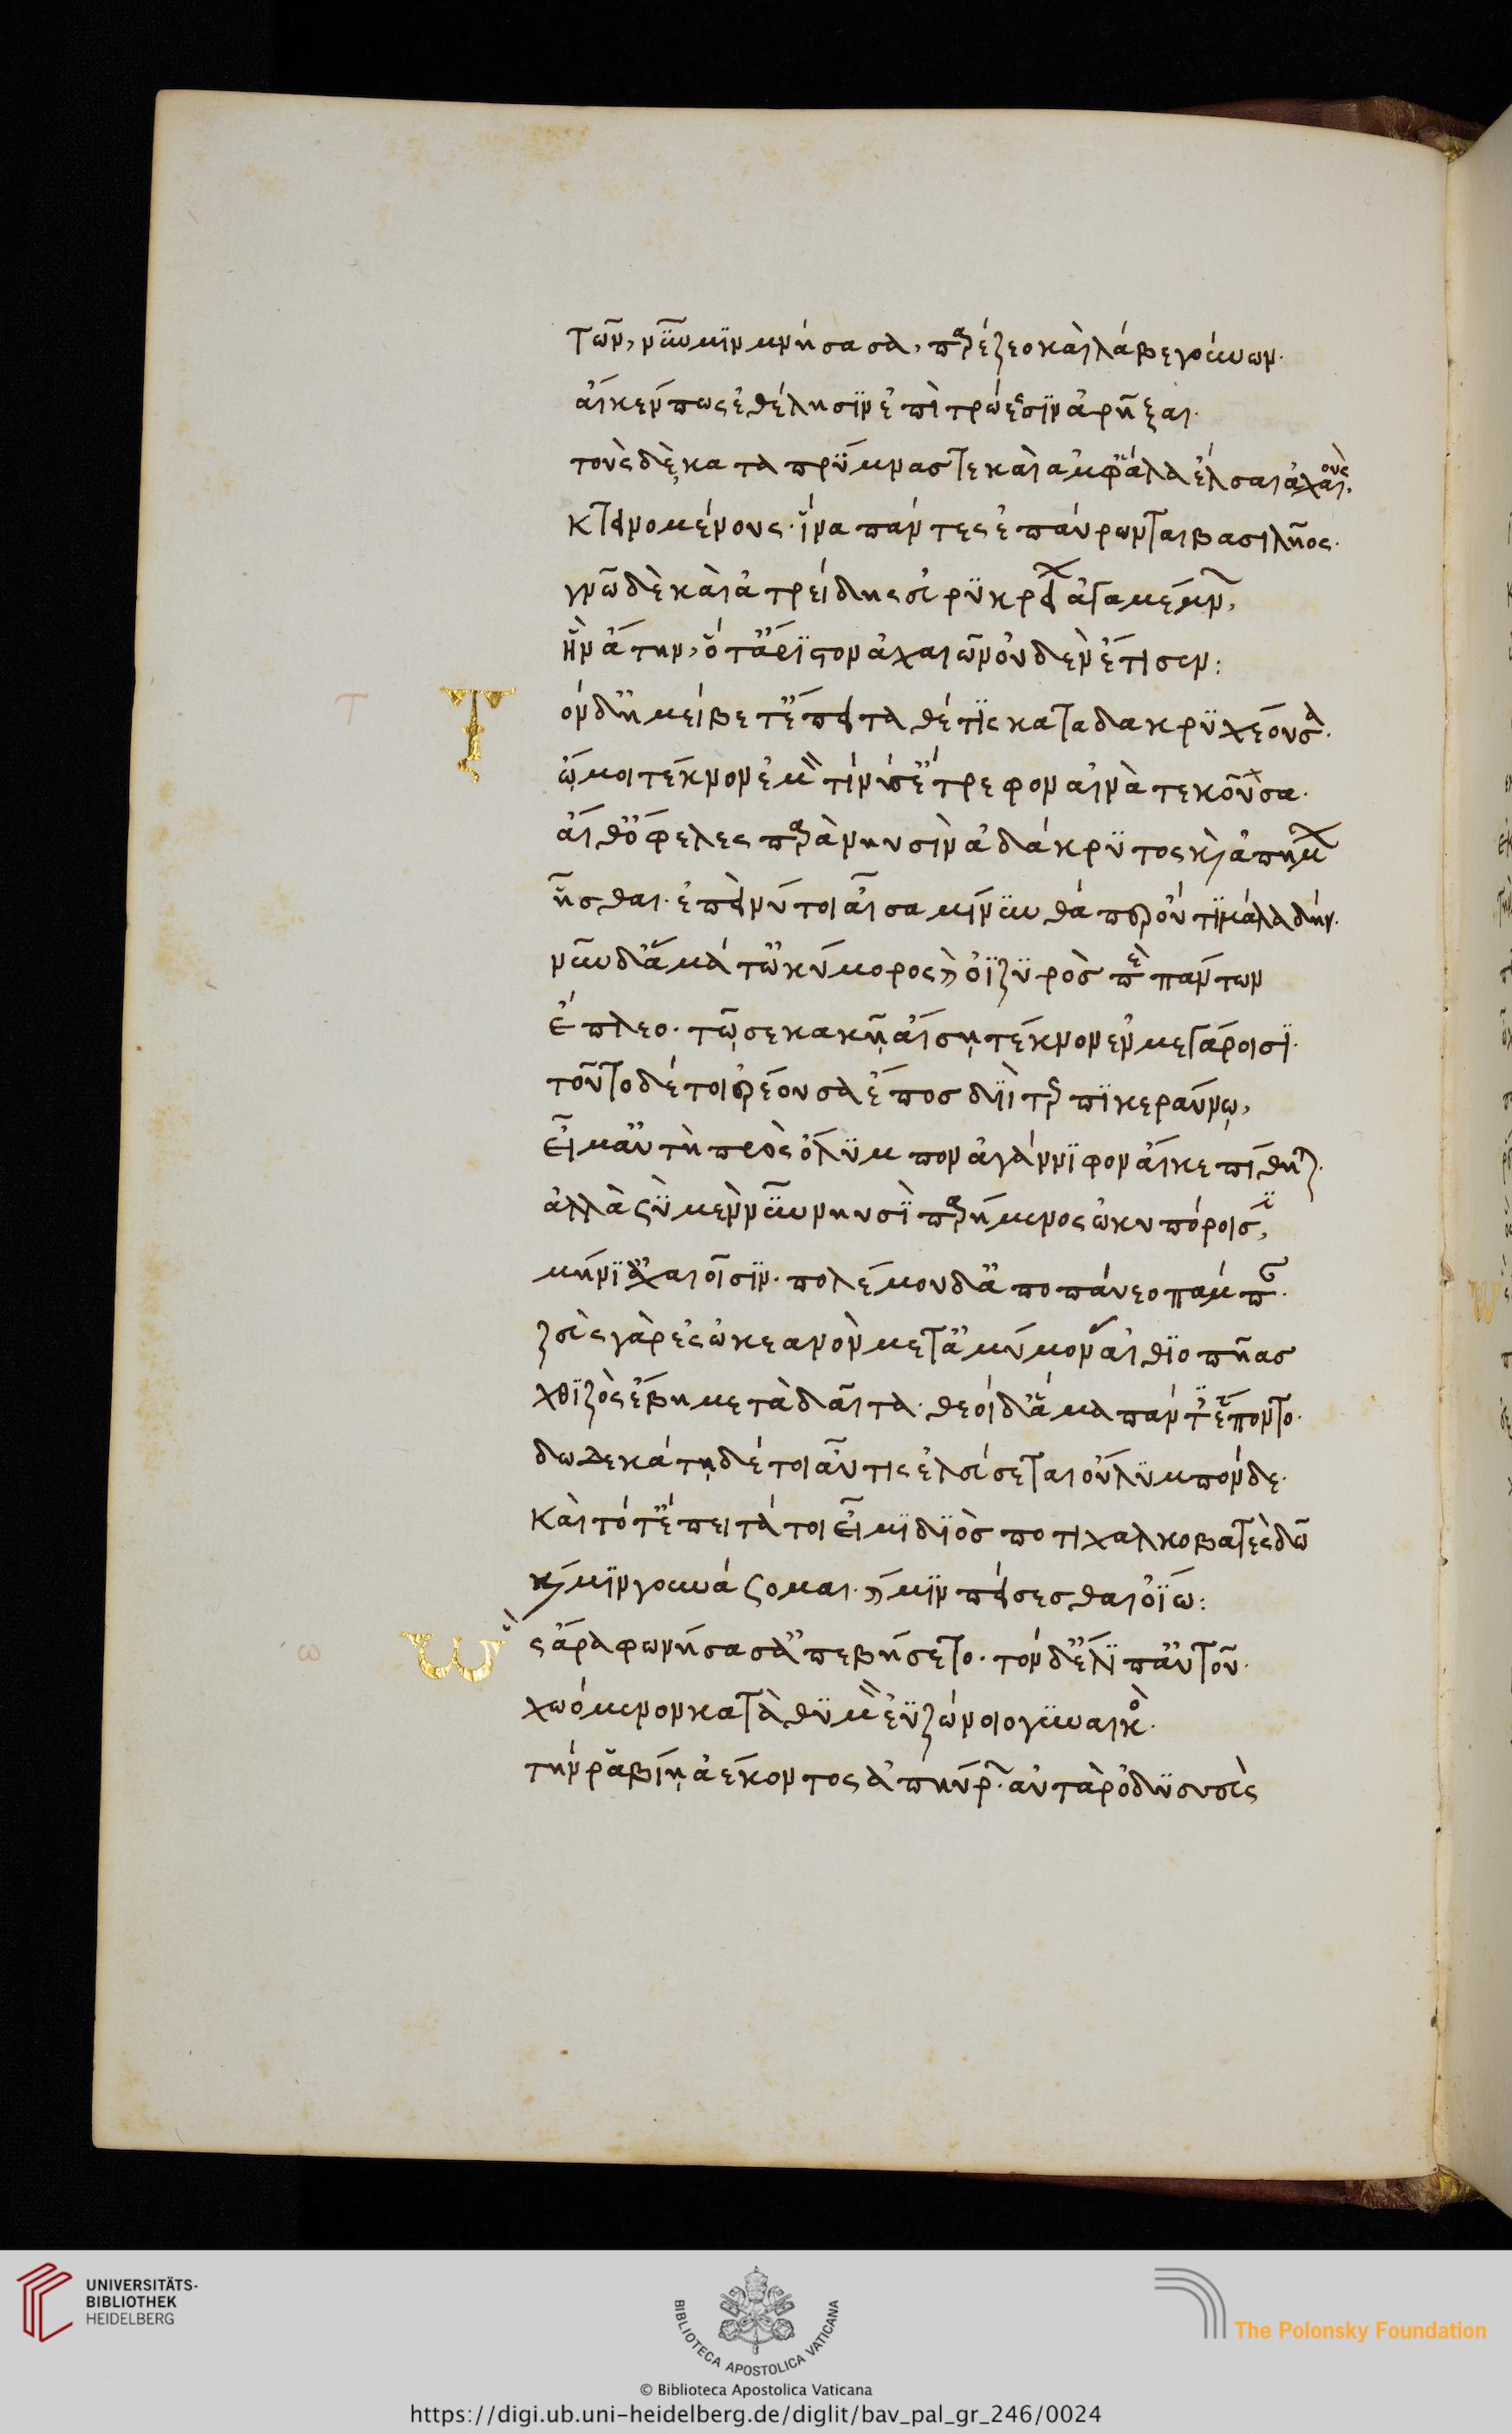 Τῶν, νῦν μϊν μνήσασα, παρέζεο καὶ λάβε γούνων.
αἴκέν πως ἐθέλησϊν ἐπὶ τρώεσσϊν ἀρῆξαι.
τοὺς δὲ κατὰ πρΰμνας τε καὶ ἀμφ' ἅλα ἔλσαι ἀχαιούς,
κτεινομένους. ἵ̈να πάντες ἐπαύρωνται βασιλῆος.
γνῶ δὲ καὶ ἀτρείδης εὐρϋκρείων ἀγαμέμνων,
ἣν ἄτην, ὅτ' ἄριϊστον ἀχαιῶν οὐδὲν ἔτισεν:
Τ
Τ
ὸν δ' ἠμείβετ' ἔπειτα θέτϊς κατα δακρϋχέουσα.
ὤμοι τέκνον ἐμὸν τί νύ σ' ἔτρεφον αἰνὰ τεκοῦσα.
αἴθ' ὄφελες παρὰ νηυσὶν ἀδάκρϋτος καὶ ἀπήμων
ἧσθαι. ἐπεὶ νύ τοι αἶσα μίνϋνθά περ οὔ τϊ μάλα δήν.
νῦν δ' ἅμα τ' ὠκύμορος καὶ ὀϊζϋρὸς περὶ πάντων
ἔπλεο. τῷ σε κακῇ αἴσῃ τέκνον ἐν μεγάροισϊ.
τοῦτο δέ τοι ἐρέουσα ἔπος διῒ τερπϊκεραύνῳ,
εἶμ' αὐτὴ πρὸς ὄλϋμπον ἀγάννϊφον αἴ κε πίθηται.
ἀλλὰ σῢ μὲν νῦν νηυσῒ παρήμενος ὠκυπόροισϊ,
μήνϊ' ἀχαιοῖσϊν. πολέμου δ' ἀποπαύεο πάμπαν.
ζεὺς γὰρ ἐς ὠκεανὸν μετ' ἀμύμονας αἰθϊοπῆας
χθϊζὸς ἔβη μετὰ δαῖτα. θεοὶ δ' ἅμα πάντες ἕποντο.
δωδεκάτῃ δέ τοι αὖτις ἐλεύσεται οὔλϋμπόνδε.
καὶ τότ' ἔπειτά τοι εἶμϊ δϊὸς ποτὶ χαλκοβατὲς δῶ
καί μϊν γουνάσομαι. καί μϊν πείσεσθαι ὀΐω:
ω
Ὣ
ς ἄρα φωνήσασ' ἀπεβήσετο. τὸν δ' ἔλϊπ' αὐτοῦ.
χωόμενον κατὰ θϋμὸν ἐϋζώνοιο γϋναικός.
τήν ῥα βίῃ ἀέκοντος ἀπηύρων. αὐτὰρ ὀδϋσσεὺς
UNIVERSITÄTS-
BIBLIOTHEK
HEIDELBERG
BIBLIOTECA APOSTOLICA VATICANA
The Polonsky Foundation
© Biblioteca Apostolica Vaticana
https://digi.ub.uni-heidelberg.de/diglit/bav_pal_gr_246/0024